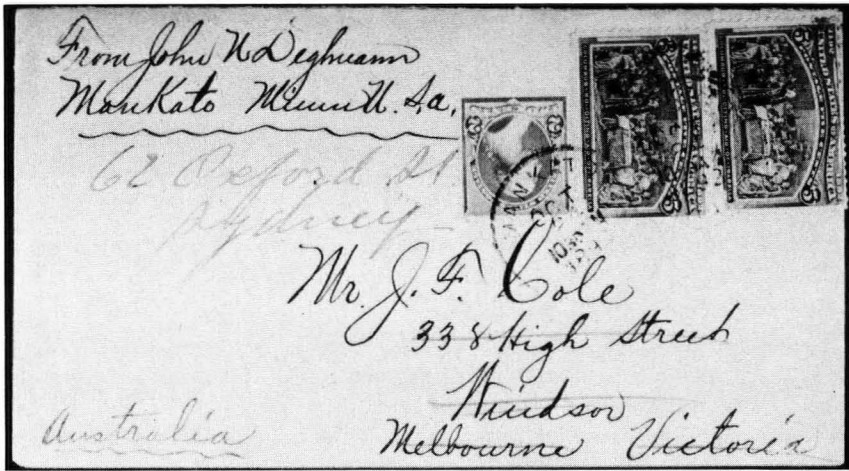 From John N. Deghuann
Mankato Minn U. S. a.
62 Oxford St.
Sydney
OCT
10
Mr. J. F. Cole
338 High Street
Windsor
Melbourne Victoria
Australia